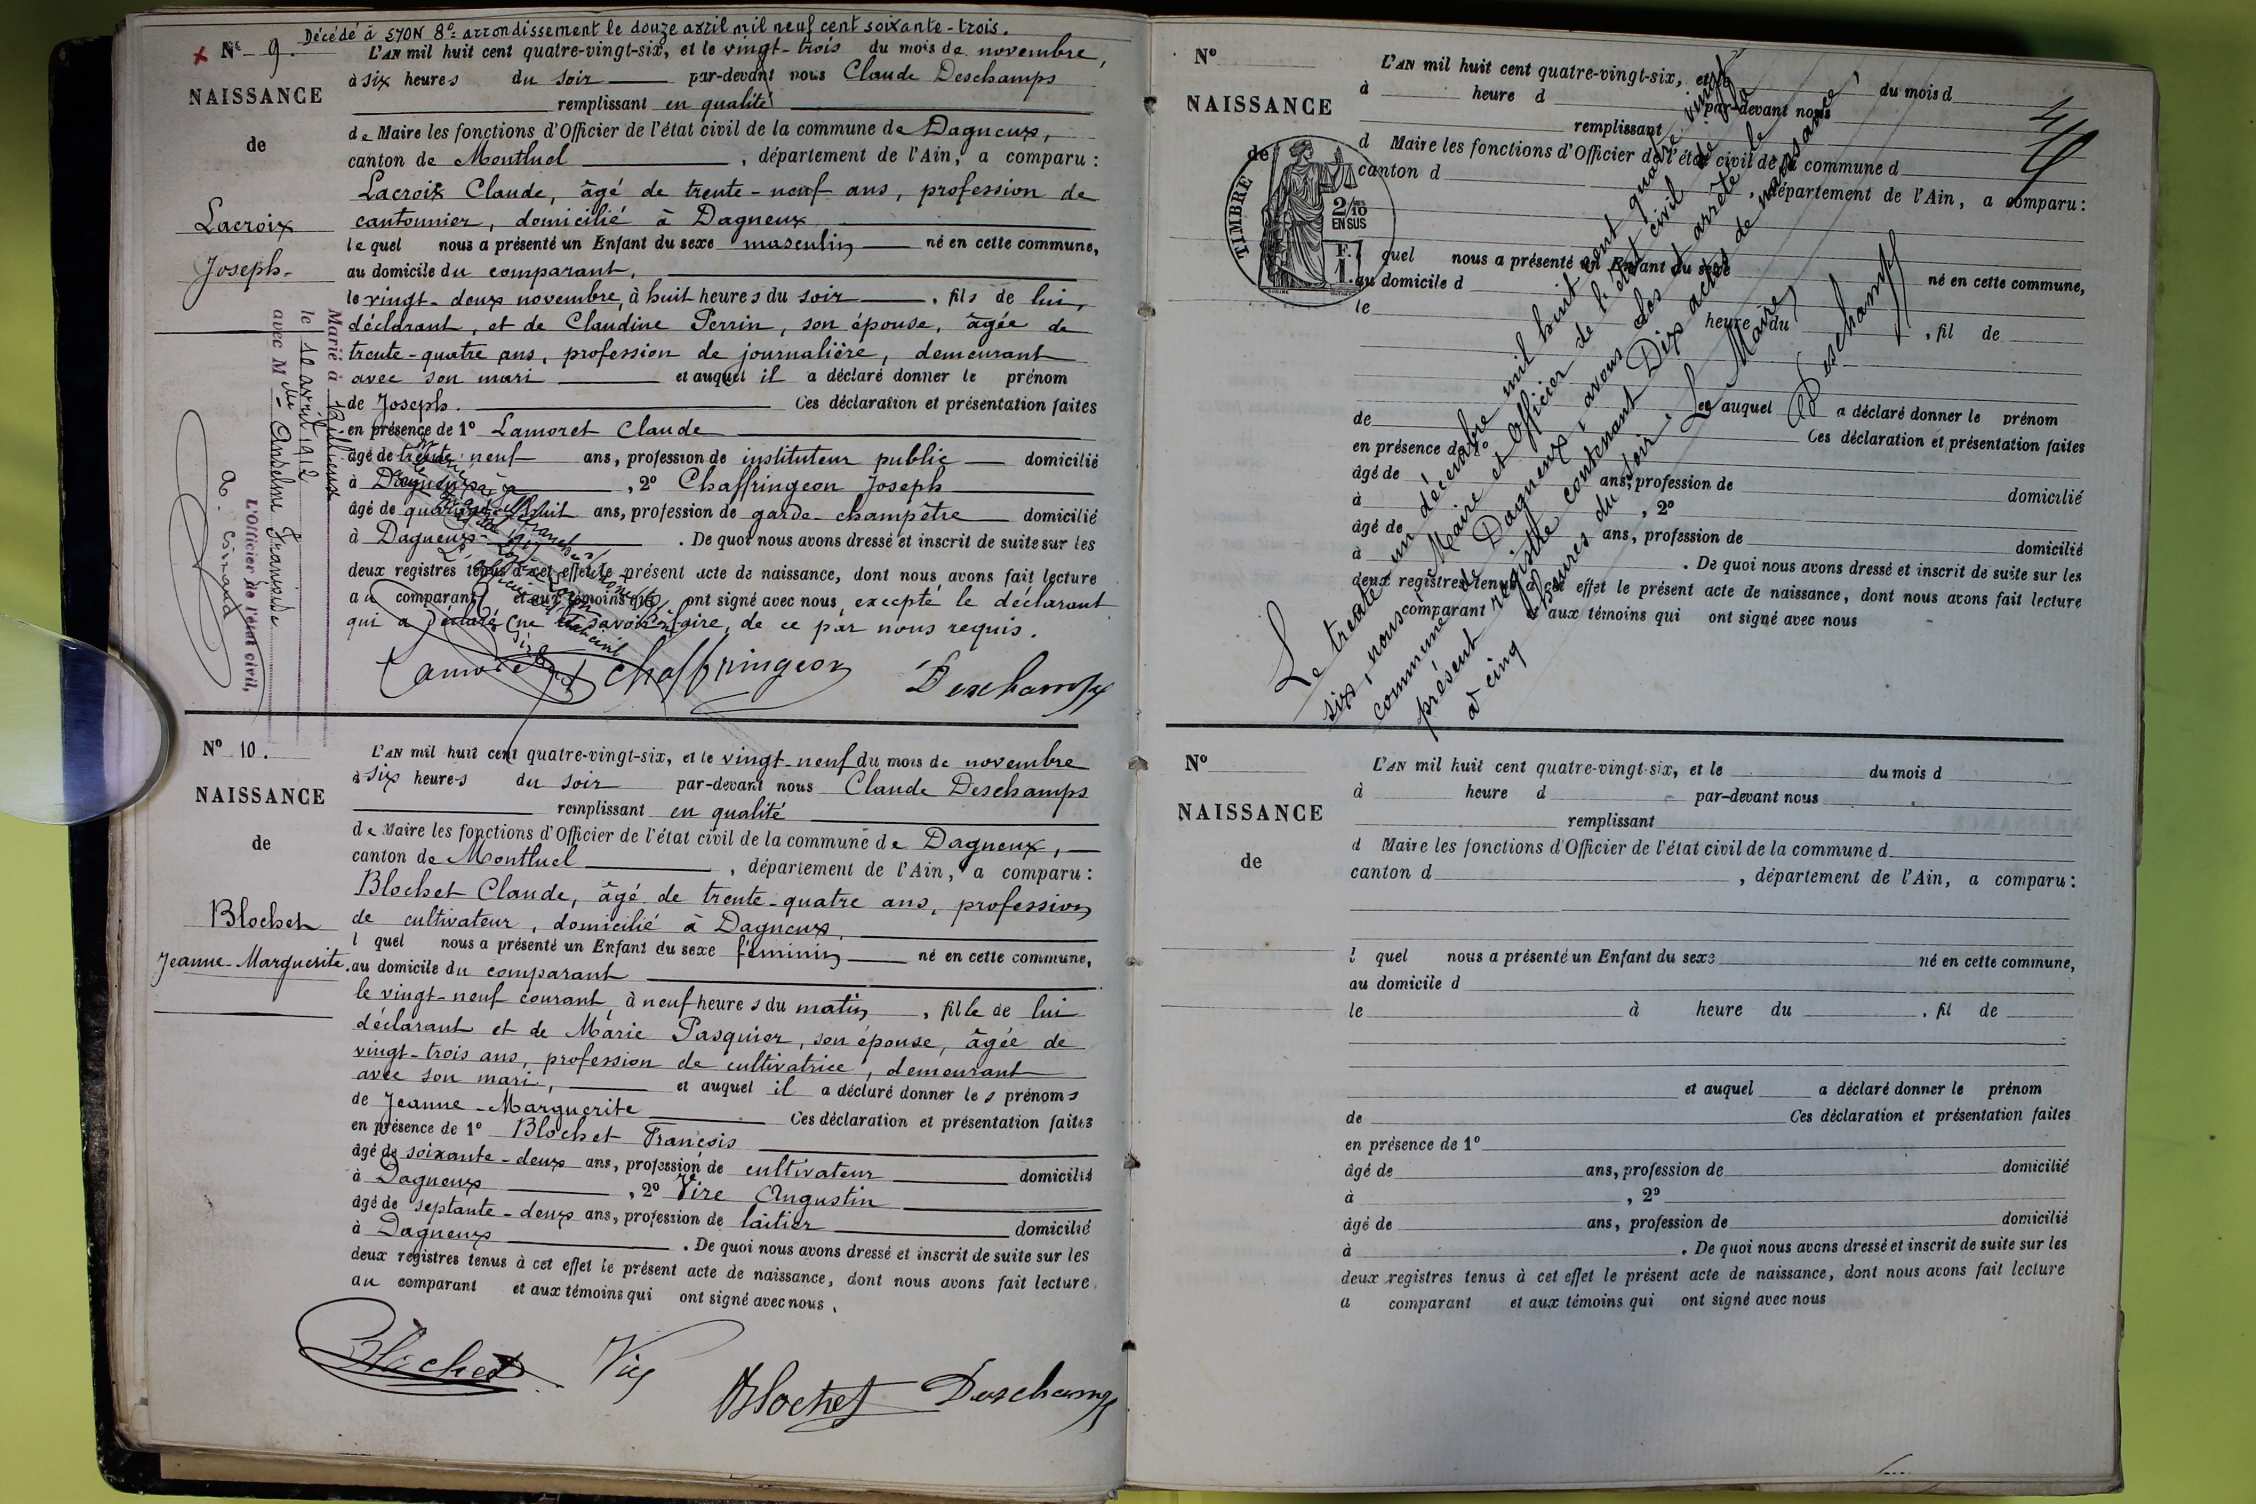 Décédé à LYON 8e arrondissement le douze avril mil neuf cent soixante-trois.
N° 9.
NAISSANCE
de
Lacroix
Joseph
L'AN mil huit cent quatre-vingt-six, et le vingt-trois du mois de novembre,
à six heures du soir par-devant nous Claude Deschamps
remplissant en qualité
de Maire les fonctions d'Officier de l'état civil de la commune de Dagneux,
canton de Montluel, département de l'Ain, a comparu :
Lacroix Claude, âgé de trente-neuf ans, profession de
cantonnier, domicilié à Dagneux
lequel nous a présenté un Enfant du sexe masculin né en cette commune,
au domicile du comparant,
le vingt-deux novembre, à huit heures du soir, fils de lui,
déclarant, et de Claudine Perrin, son épouse, âgée de
trente-quatre ans, profession de journalière, demeurant
avec son mari et auquel il a déclaré donner le prénom
de Joseph. Ces déclaration et présentation faites
en présence de 1° Lamoret Claude
âgé de trente neuf ans, profession de instituteur public domicilié
à Dagneux, 2° Chaffringeon Joseph
âgé de quarante-huit ans, profession de garde-champêtre domicilié
à Dagneux. De quoi nous avons dressé et inscrit de suite sur les
deux registres tenus à cet effet le présent acte de naissance, dont nous avons fait lecture
au comparant et aux témoins qui ont signé avec nous, excepté le déclarant
qui a déclaré ne savoir le faire, de ce par nous requis.
Lamoret Chaffringeon Deschamps
Marié à Rillieux
le 10 avril 1912
avec Mlle Anselme Françoise
L'Officier de l'état civil,
N° 10.
NAISSANCE
de
Blochet
Jeanne-Marguerite.
L'AN mil huit cent quatre-vingt-six, et le vingt-neuf du mois de novembre
à six heures du soir par-devant nous Claude Deschamps
remplissant en qualité
de Maire les fonctions d'Officier de l'état civil de la commune de Dagneux,
canton de Montluel, département de l'Ain, a comparu :
Blochet Claude, âgé de trente-quatre ans, profession
de cultivateur, domicilié à Dagneux,
l quel nous a présenté un Enfant du sexe féminin né en cette commune,
au domicile du comparant
le vingt-neuf courant, à neuf heures du matin, fille de lui
déclarant et de Marie Pasquier, son épouse, âgée de
vingt-trois ans, profession de cultivatrice, demeurant
avec son mari, et auquel il a déclaré donner les prénoms
de Jeanne-Marguerite Ces déclaration et présentation faites
en présence de 1° Blochet François
âgé de soixante-deux ans, profession de cultivateur domicilié
à Dagneux, 2° Vire Augustin
âgé de septante-deux ans, profession de laitier domicilié
à Dagneux. De quoi nous avons dressé et inscrit de suite sur les
deux registres tenus à cet effet le présent acte de naissance, dont nous avons fait lecture
au comparant et aux témoins qui ont signé avec nous.
Blochet Blochet Deschamps
N°
NAISSANCE
de
TIMBRE
2/10 EN SUS
L'AN mil huit cent quatre-vingt-six, et le du mois d
à heure d par-devant nous
remplissant
d Maire les fonctions d'Officier de l'état civil de la commune d
canton d, département de l'Ain, a comparu :
quel nous a présenté un Enfant du sexe né en cette commune,
au domicile d
le heure du, fil de
et auquel a déclaré donner le prénom
de Ces déclaration et présentation faites
en présence de 1°
âgé de ans, profession de domicilié
à, 2°
âgé de ans, profession de domicilié
à. De quoi nous avons dressé et inscrit de suite sur les
deux registres tenus à cet effet le présent acte de naissance, dont nous avons fait lecture
comparant et aux témoins qui ont signé avec nous
Le trente un décembre mil huit cent quatre vingt
six, nous, Maire et Officier de l'état civil de la
commune de Dagneux, avons clos et arrêté le
présent registre contenant Dix actes de naissance,
à cinq heures du soir. Le Maire,
Deschamps
N°
NAISSANCE
de
L'AN mil huit cent quatre-vingt-six, et le du mois d
à heure d par-devant nous
remplissant
d Maire les fonctions d'Officier de l'état civil de la commune d
canton d, département de l'Ain, a comparu :
l quel nous a présenté un Enfant du sexe né en cette commune,
au domicile d
le à heure du, fil de
et auquel a déclaré donner le prénom
de Ces déclaration et présentation faites
en présence de 1°
âgé de ans, profession de domicilié
à, 2°
âgé de ans, profession de domicilié
à. De quoi nous avons dressé et inscrit de suite sur les
deux registres tenus à cet effet le présent acte de naissance, dont nous avons fait lecture
a comparant et aux témoins qui ont signé avec nous